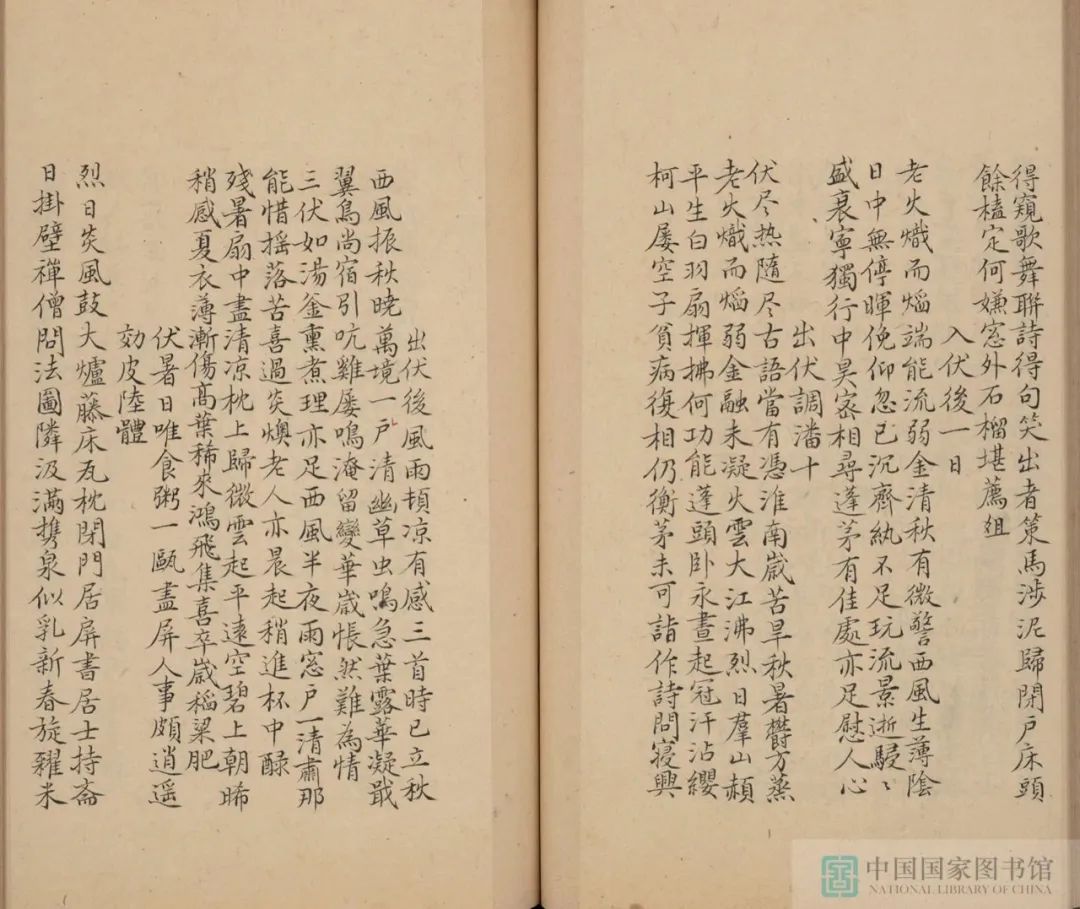 得窺歌舞聯詩得句笑出者策馬涉泥歸閉戶床頭
餘榼定何嫌窓外石榴堪薦俎
入伏後一日
老火熾而熖端能流弱金清秋有微警西風生薄陰
日中無停暉俛仰忽已沉齊紈不足玩流景逝駸〻
盛衰寧獨行中昊寔相尋蓬茅有佳處亦足慰人心
出伏調潘十
伏尽热隨尽古語當有憑淮南嵗苦旱秋暑欝方蒸
老火熾而熖弱金融未凝火雲大江沸烈日羣山赪
平生白羽扇揮拂何功能蓬頭卧永晝起冠汗沾纓
柯山屡空子貧病復相仍衡茅未可詣作詩問寝興
出伏後風雨頓凉有感三首時已立秋
西風振秋曉萬境一戶清幽草虫鳴急葉露華凝戢
翼鳥尚宿引吭雞屡鳴淹留變華嵗悵然難為情
三伏如湯釡熏煮理亦足西風半夜雨窓戶一清肅那
能惜揺落苦喜過炎燠老人亦晨起稍進杯中醁
殘暑扇中盡清凉枕上歸微雲起平遠空碧上朝晞
稍感夏衣薄漸傷髙葉稀來鴻飛集喜卒嵗稻粱肥
伏暑日唯食粥一甌盡屏人事頗逍遥
効皮陸體
烈日炎風鼓大爐藤床瓦枕閉門居屏書居士持齋
日掛壁禪僧問法圖隣汲滿擕泉似乳新舂旋糴米
中国国家图书馆
NATIONAL LIBRARY OF CHINA